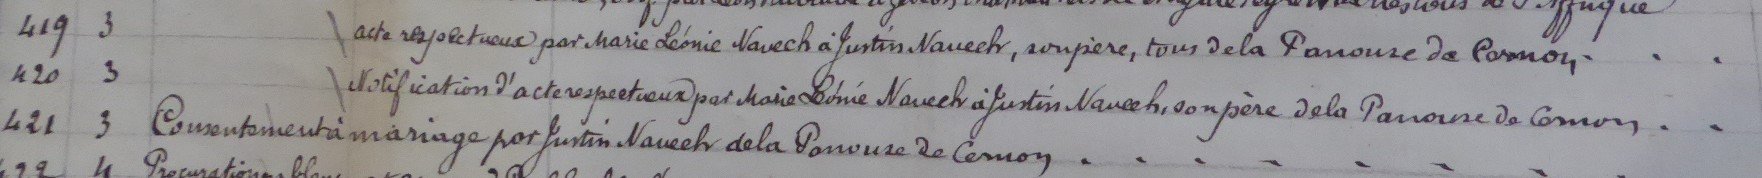 de St Affrique
419 3 acte respectueux par Marie Léonie Navech à Justin Navech, son père, tous de la Panouse de Cernon
420 3 Notification d'acte respectueux par Marie Léonie Navech à Justin Navech, son père de la Panouse de Cernon
421 3 Consentement à mariage par Justin Navech de la Panouse de Cernon
422 4 Procuration en blanc